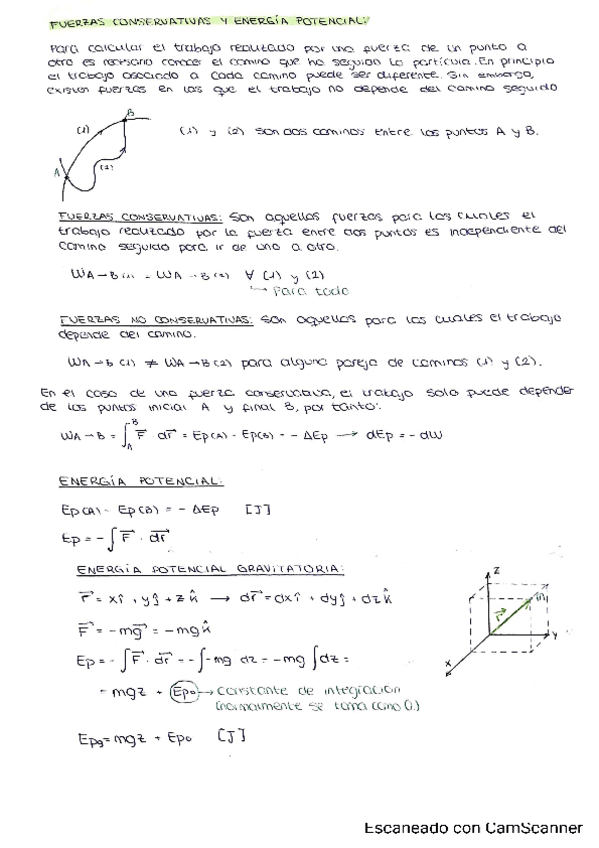 FUERZAS CONSERVATIVAS Y ENERGÍA POTENCIAL:
Para calcular el trabajo realizado por una fuerza de un punto a
otro es necesario conocer el camino que ha seguido la partícula. En principio
el trabajo asociado a cada camino puede ser diferente. Sin embargo,
existen fuerzas en las que el trabajo no depende del camino seguido
B
(1)
(1) y (2) son dos caminos entre los puntos A y B.
A
(2)
FUERZAS CONSERVATIVAS: Son aquellas fuerzas para las cuales el
trabajo realizado por la fuerza entre dos puntos es independiente del
camino seguido para ir de uno a otro.
WA→B (1) = WA→B (2) ∀ (1) y (2)
↳ Para todo
FUERZAS NO CONSERVATIVAS: Son aquellas para las cuales el trabajo
depende del camino.
WA→B (1) ≠ WA→B (2) para alguna pareja de caminos (1) y (2).
En el caso de una fuerza conservativa, el trabajo solo puede depender
de los puntos inicial A y final B, por tanto:
WA→B = ∫_A^B F⃗ · dr⃗ = Ep(A) - Ep(B) = - ΔEp → dEp = - dW
ENERGÍA POTENCIAL:
Ep(A) - Ep(B) = - ΔEp [J]
Ep = - ∫ F⃗ · dr⃗
ENERGÍA POTENCIAL GRAVITATORIA:
r⃗ = xî + yĵ + zk̂ → dr⃗ = dxî + dyĵ + dzk̂
F⃗ = -mg⃗ = -mgk̂
Ep = - ∫ F⃗ · dr⃗ = - ∫ -mg dz = -mg ∫ dz =
= mgz + Ep0 → constante de integración
(normalmente se toma como 0.)
Epg = mgz + Ep0 [J]
z
m
r⃗
y
x
Escaneado con CamScanner